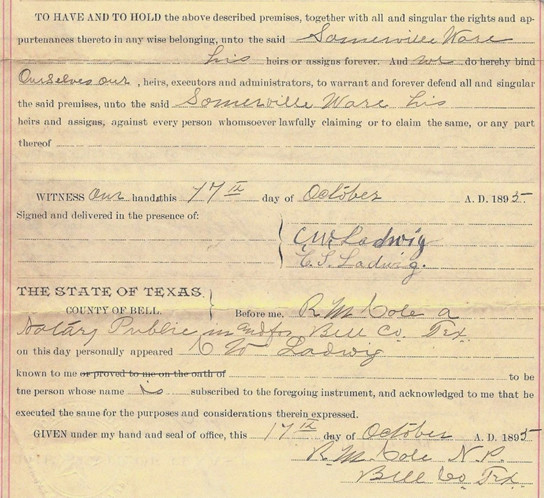 TO HAVE AND TO HOLD the above described premises, together with all and singular the rights and ap-
purtenances thereto in any wise belonging, unto the said Somerville Ware
his heirs or assigns forever. And we do hereby bind
Ourselves our, heirs, executors and administrators, to warrant and forever defend all and singular
the said premises, unto the said Somerville Ware his
heirs and assigns, against every person whomsoever lawfully claiming or to claim the same, or any part
thereof
WITNESS our hand, this 17th day of October A. D. 1895
Signed and delivered in the presence of:
C. W. Ladwig
C. S. Ladwig.
THE STATE OF TEXAS.
COUNTY OF BELL. Before me, R. M. Cole a
Notary Public in and for Bell Co, Tex.
on this day personally appeared C W Ladwig
known to me or proved to me on the oath of to be
tne person whose name is subscribed to the foregoing instrument, and acknowledged to me that he
executed the same for the purposes and considerations therein expressed.
GIVEN under my hand and seal of office, this 17th day of October A. D. 1895
R. M. Cole N. P.
Bell Co, Tex.